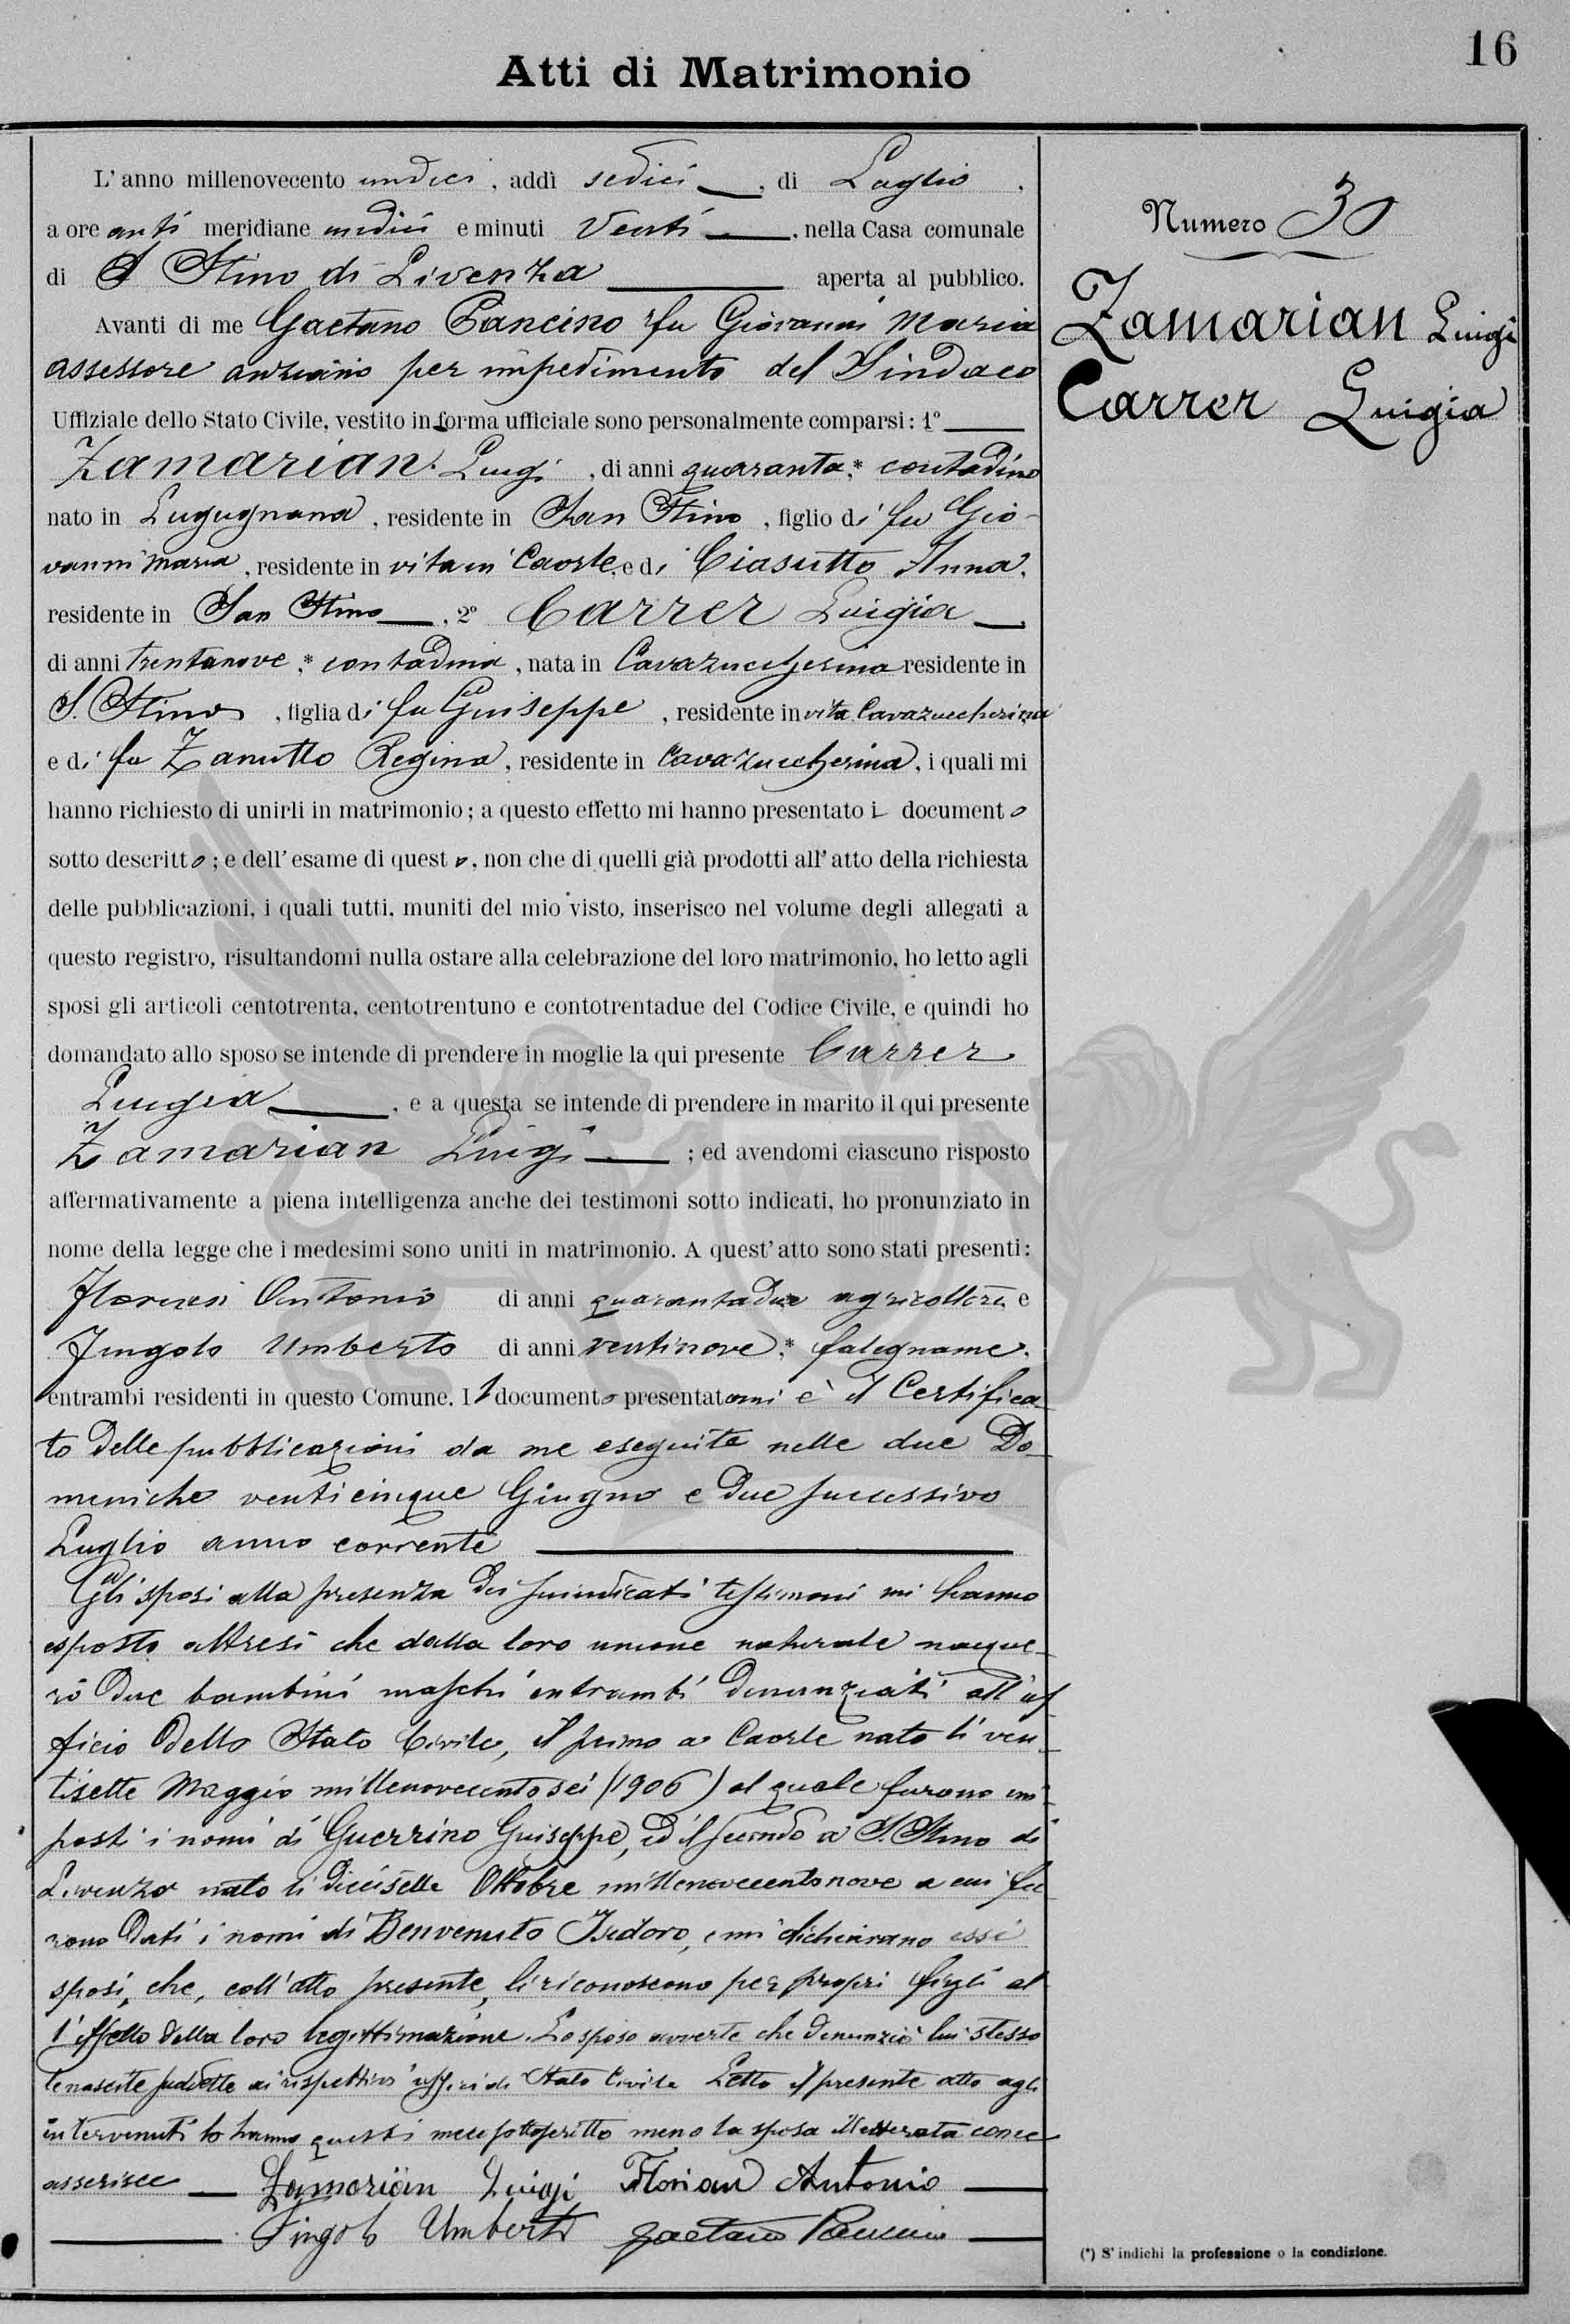 16
Atti di Matrimonio
L'anno millenovecento undici, addì sedici, di Luglio,
a ore anti meridiane undici e minuti Venti, nella Casa comunale
di S Stino di Livenza aperta al pubblico.
Avanti di me Gaetano Pancino fu Giovanni Maria
assessore anziano per impedimento del Sindaco
Uffiziale dello Stato Civile, vestito in forma ufficiale sono personalmente comparsi: 1º
Zamarian Luigi, di anni quaranta,* contadino
nato in Lugugnana, residente in San Stino, figlio di fu Gio-
vanni Maria, residente in vita in Caorle, e di Ciasutto Anna,
residente in San Stino, 2º Carrer Luigia
di anni trentanove,* contadina, nata in Cavazuccherina residente in
S. Stino, figlia di fu Giuseppe, residente in vita Cavazuccherina
e di fu Zanutto Regina, residente in Cavazuccherina, i quali mi
hanno richiesto di unirli in matrimonio; a questo effetto mi hanno presentato il documento
sotto descritto; e dell'esame di questo, non che di quelli già prodotti all'atto della richiesta
delle pubblicazioni, i quali tutti, muniti del mio visto, inserisco nel volume degli allegati a
questo registro, risultandomi nulla ostare alla celebrazione del loro matrimonio, ho letto agli
sposi gli articoli centotrenta, centotrentuno e contotrentadue del Codice Civile, e quindi ho
domandato allo sposo se intende di prendere in moglie la qui presente Carrer
Luigia, e a questa se intende di prendere in marito il qui presente
Zamarian Luigi; ed avendomi ciascuno risposto
affermativamente a piena intelligenza anche dei testimoni sotto indicati, ho pronunziato in
nome della legge che i medesimi sono uniti in matrimonio. A quest'atto sono stati presenti:
Antonio di anni quarantadue agricoltore e
Umberto di anni ventinove,* falegname,
entrambi residenti in questo Comune. Il documento presentatomi è il Certifica-
to delle pubblicazioni da me eseguite nelle due Do-
meniche venticinque Giugno e due successivo
Luglio anno corrente
Gli sposi alla presenza dei suindicati testimoni mi hanno
esposto altresì che dalla loro unione naturale nacque-
ro due bambini maschi entrambi denunziati all'uf
ficio dello Stato Civile, il primo a Caorle nato li ven-
tisette Maggio millenovecentosei (1906) al quale furono im-
posti i nomi di Guerrino Giuseppe, ed il secondo a S. Stino di
Livenza nato li diecisette Ottobre millenovecentonove a cui fu
rono dati i nomi di Benvenuto Isidoro, e mi dichiarano essi
sposi, che, coll'atto presente, li riconoscono per propri figli al
l'effetto della loro legittimazione. Lo sposo avverte che denunziò lui stesso
le nascite suddette ai rispettivi uffici di Stato Civile Letto il presente atto agli
intervenuti lo hanno questi meco sottoscritto meno la sposa illetterata come
asserisce Zamarian Luigi Florian Antonio
Umberto Gaetano Pancino
Numero 30
Zamarian Luigi
Carrer Luigia
(*) S'indichi la professione o la condizione.